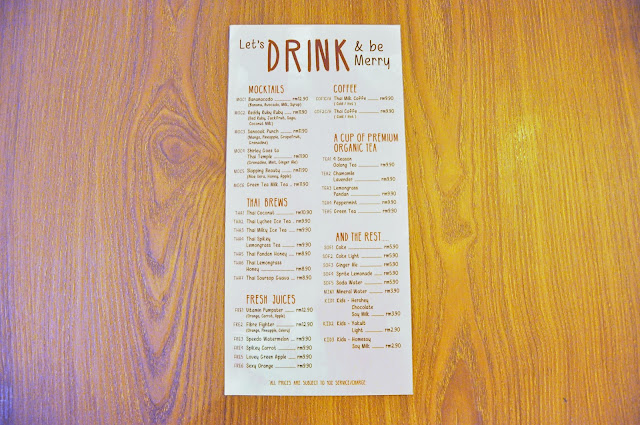 Let's DRINK & be Merry
MOCKTAILS
MO01 Bananacado rm12.90
(Banana, Avocado, Milk, Syrup)
MO02 Reddy Ruby Ruby rm11.90
(Red Ruby, Jackfruit, Sago,
Coconut Milk)
MO03 Samcook Punch
(Mango, Pineapple, Grapefruit,
Grenadine)
MO04 Shirley Goes to
Thai Temple rm11.90
(Grenadine, Mint, Ginger Ale)
MO05 Slapping Beauty rm11.90
(Aloe Vera, Honey, Apple)
MO06 Green Tea Milk Tea rm9.90
THAI BREWS
THA1 Thai Coconut rm10.90
THA2 Thai Lychee Ice Tea rm9.90
THA3 Thai Milky Ice Tea rm9.90
THA4 Thai Spikey
Lemongrass Tea rm9.90
THA5 Thai Pandan Honey rm8.90
THA6 Thai Lemongrass
Honey rm8.90
THA7 Thai Soursop Guava rm8.90
FRESH JUICES
FRE1 Vitamin Pumpster rm12.90
(Orange, Carrot, Apple)
FRE2 Fibre Fighter rm12.90
(Orange, Pineapple, Celery)
FRE3 Speedo Watermelon rm9.90
FRE4 Spikey Carrot rm9.90
FRE5 Lovey Green Apple rm9.90
FRE6 Sexy Orange rm9.90
COFFEE
Thai Milk Coffe rm9.90
(Cold / Hot)
Thai Coffe rm9.90
(Cold / Hot)
A CUP OF PREMIUM
ORGANIC TEA
TEA1 4 Season
Oolong Tea rm9.90
TEA2 Chamomile
Lavender rm9.90
TEA3 Lemongrass
Pandan rm9.90
TEA4 Peppermint rm9.90
TEA5 Green Tea rm9.90
AND THE REST...
SOF1 Coke rm5.90
SOF2 Coke Light rm5.90
SOF3 Ginger Ale rm5.90
SOF4 Sprite Lemonade rm5.90
SOF5 Soda Water rm5.90
MIN1 Mineral Water rm2.90
KID1 Kids - Hershey
Chocolate
Soy Milk rm3.90
KID2 Kids - Yakult
Light rm2.90
KID3 Kids - Homesoy
Soy Milk rm2.90
ALL PRICES ARE SUBJECT TO 10% SERVICE CHARGE